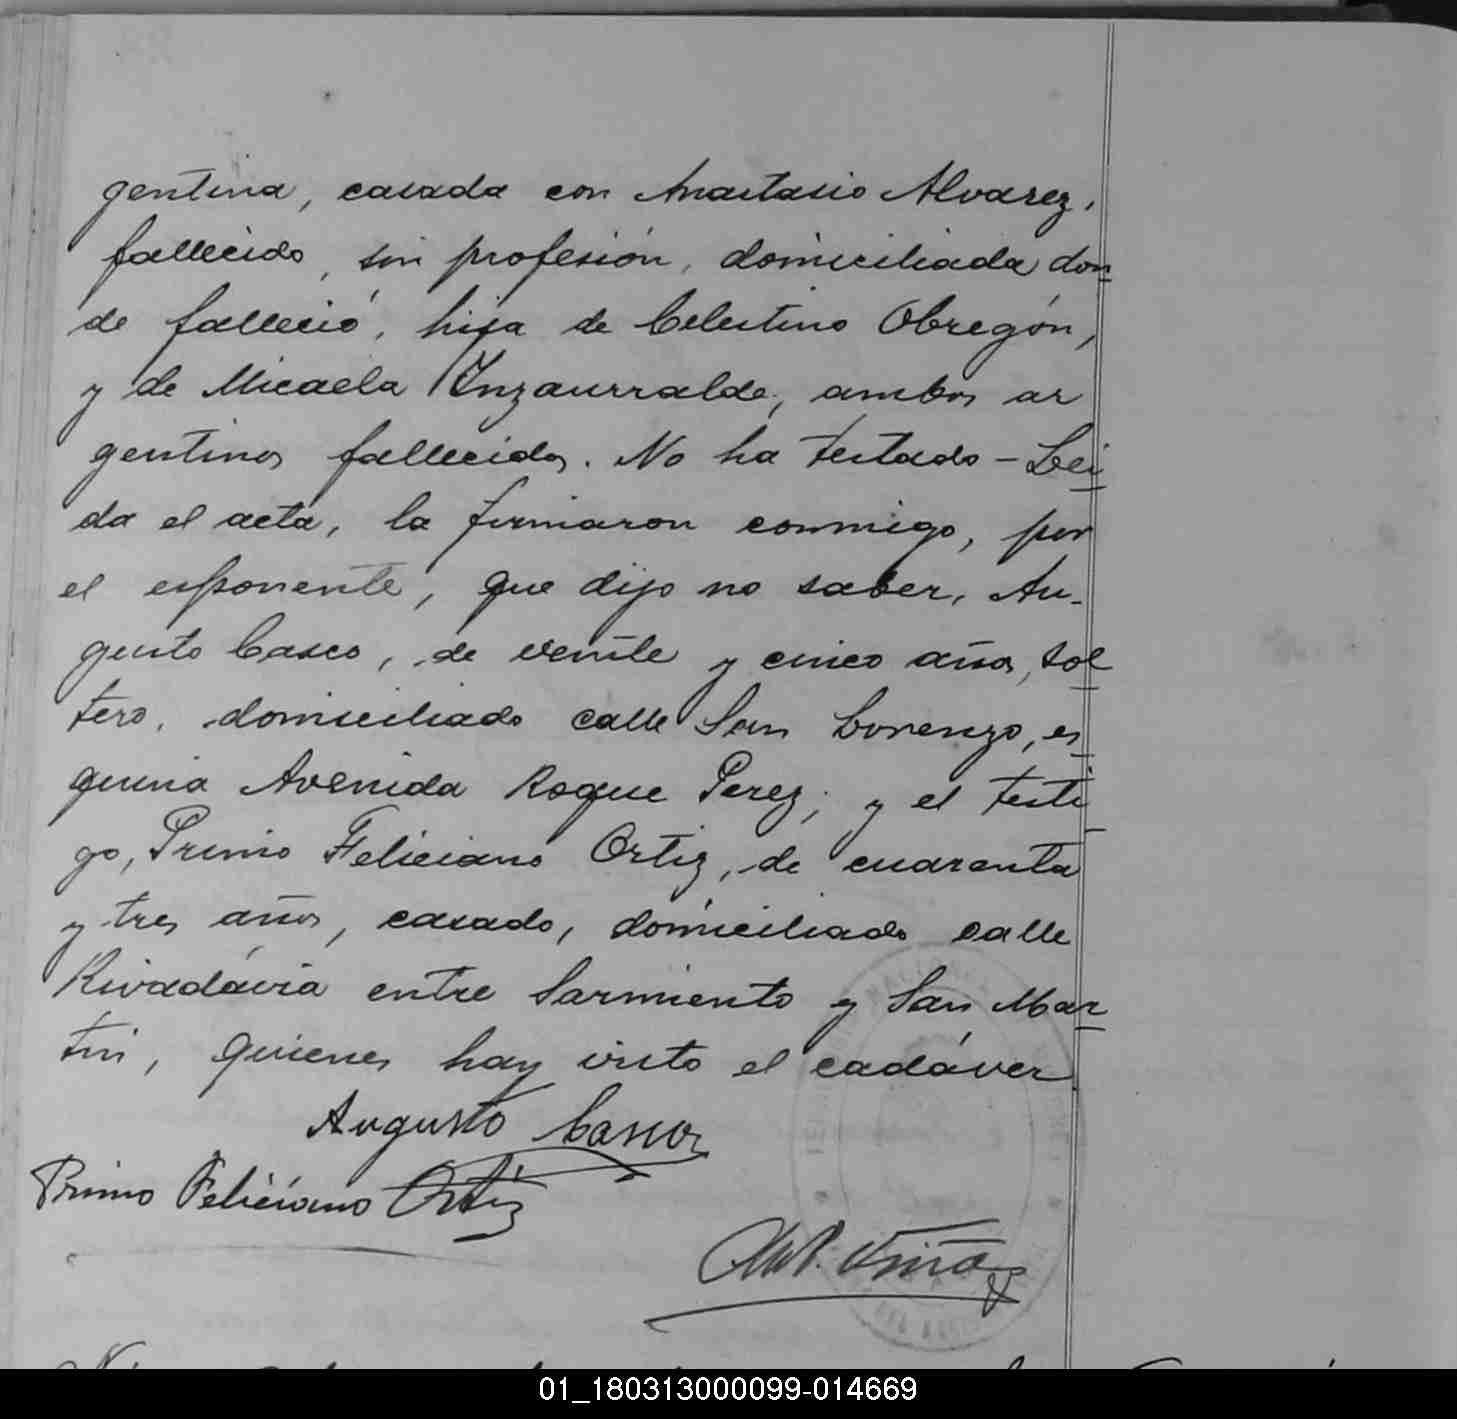 gentina, casada con Anastasio Alvarez,
fallecido, sin profesión, domiciliada don
de falleció, hija de Celestino Obregón,
y de Micaela Ynzaurralde, ambos ar
gentinos fallecidos. No ha testado - Lei
da el acta, la firmaron conmigo, por
el esponente, que dijo no saber, Au-
gusto Casco, de veinte y cinco años, sol
tero, domiciliado calle San Lorenzo, es
quina Avenida Roque Perez; y el testi
go, Primo Feliciano Ortiz, de cuarenta
y tres años, casado, domiciliado calle
Rivadávia entre Sarmiento y San Mar
tin, quienes han visto el cadáver
Augusto Casco
Primo Feliciano Ortiz
01_180313000099-014669